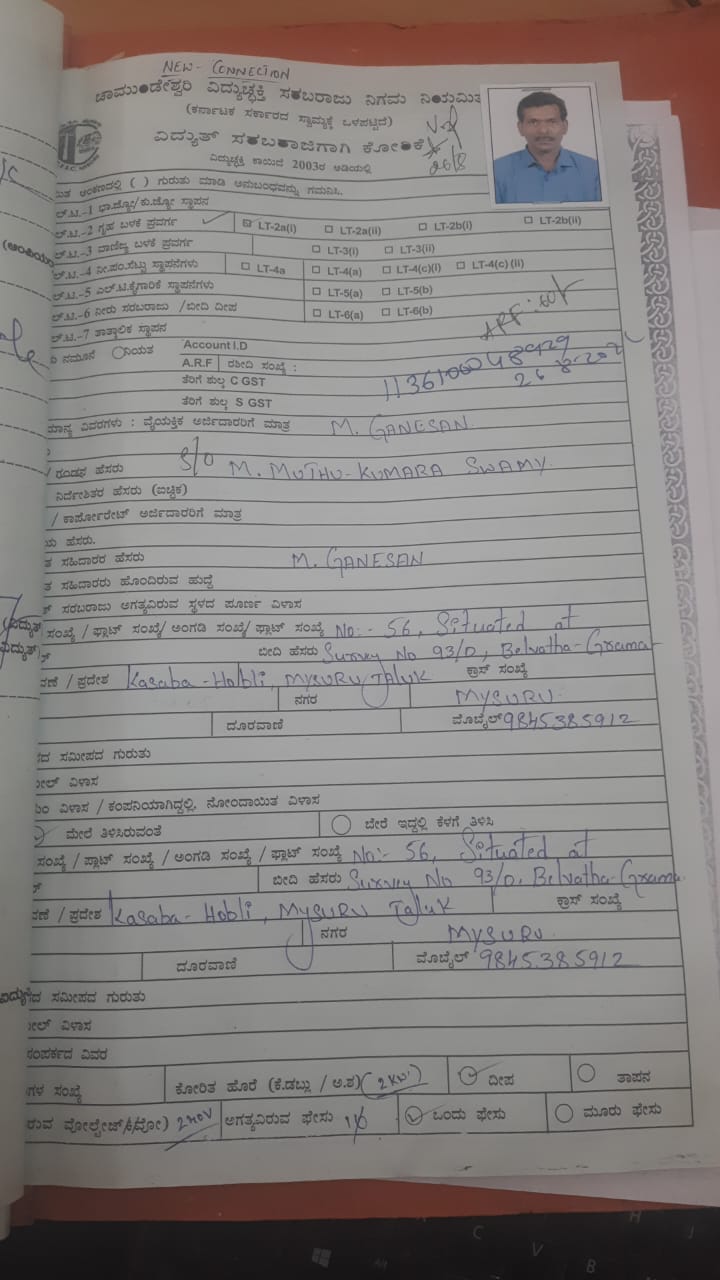 NEW- CONNECTION
ಚಾಮುಂಡೇಶ್ವರಿ ವಿದ್ಯುಚ್ಛಕ್ತಿ ಸರಬರಾಜು ನಿಗಮ ನಿಯಮಿತ
(ಕರ್ನಾಟಕ ಸರ್ಕಾರದ ಸ್ವಾಮ್ಯಕ್ಕೆ ಒಳಪಟ್ಟಿದೆ)
ವಿದ್ಯುತ್ ಸರಬರಾಜಿಗಾಗಿ ಕೋರಿಕೆ
26/8
ವಿದ್ಯುಚ್ಛಕ್ತಿ ಕಾಯಿದೆ 2003ರ ಅಡಿಯಲ್ಲಿ
ಅಂಕಣದಲ್ಲಿ ( ) ಗುರುತು ಮಾಡಿ ಅನುಬಂಧವನ್ನು ಗಮನಿಸಿ..
ಲ್.ಟಿ.-1 ಭಾ.ಜ್ಯೋ/ಕು.ಜ್ಯೋ ಸ್ಥಾಪನ
ಲ್.ಟಿ.-2 ಗೃಹ ಬಳಕೆ ಪ್ರವರ್ಗ LT-2a(i) LT-2a(ii) LT-2b(i) LT-2b(ii)
ಲ್.ಟಿ.-3 ವಾಣಿಜ್ಯ ಬಳಕೆ ಪ್ರವರ್ಗ LT-3(i) LT-3(ii)
ಲ್.ಟಿ.-4 ನೀ.ಪಂ.ಸೆಟ್ಟು ಸ್ಥಾಪನೆಗಳು LT-4a LT-4(a) LT-4(c)(i) LT-4(c) (ii)
ಲ್.ಟಿ.-5 ಎಲ್.ಟಿ.ಕೈಗಾರಿಕೆ ಸ್ಥಾಪನೆಗಳು LT-5(a) LT-5(b)
ಲ್.ಟಿ.-6 ನೀರು ಸರಬರಾಜು /ಬೀದಿ ದೀಪ LT-6(a) LT-6(b)
ಲ್.ಟಿ.-7 ತಾತ್ಕಾಲಿಕ ಸ್ಥಾಪನ
ನಮೂನೆ ನಿಯತ Account I.D
A.R.F ರಶೀದಿ ಸಂಖ್ಯೆ :
ತೆರಿಗೆ ಶುಲ್ಕ C GST
ತೆರಿಗೆ ಶುಲ್ಕ S GST
ಮಾನ್ಯ ವಿವರಗಳು : ವೈಯಕ್ತಿಕ ಅರ್ಜಿದಾರರಿಗೆ ಮಾತ್ರ M. GANESAN
/ ಗಂಡನ ಹೆಸರು S/O M. MUTHU-KUMARA SWAMY.
ನಿರ್ದೇಶಿತರ ಹೆಸರು (ಐಚ್ಛಿಕ)
/ ಕಾರ್ಪೋರೇಟ್ ಅರ್ಜಿದಾರರಿಗೆ ಮಾತ್ರ
ಯ ಹೆಸರು.
ತ ಸಹಿದಾರರ ಹೆಸರು M. GANESAN
ತ ಸಹಿದಾರರು ಹೊಂದಿರುವ ಹುದ್ದೆ
ಸರಬರಾಜು ಅಗತ್ಯವಿರುವ ಸ್ಥಳದ ಪೂರ್ಣ ವಿಳಾಸ
ಸಂಖ್ಯೆ / ಫ್ಲಾಟ್ ಸಂಖ್ಯೆ/ ಅಂಗಡಿ ಸಂಖ್ಯೆ/ ಫ್ಲಾಟ್ ಸಂಖ್ಯೆ No:- 56, Situated at
ಬೀದಿ ಹೆಸರು Survey No 93/D, Belvatha-Grama
ಣೆ / ಪ್ರದೇಶ Kasaba-Hobli, MYSURU Taluk ಕ್ರಾಸ್ ಸಂಖ್ಯೆ
ನಗರ MYSURU.
ದೂರವಾಣಿ ಮೊಬೈಲ್ 9845385912
ದ ಸಮೀಪದ ಗುರುತು
ೇಲ್ ವಿಳಾಸ
ವಿಳಾಸ / ಕಂಪನಿಯಾಗಿದ್ದಲ್ಲಿ, ನೋಂದಾಯಿತ ವಿಳಾಸ
ಮೇಲೆ ತಿಳಿಸಿರುವಂತೆ ಬೇರೆ ಇದ್ದಲ್ಲಿ ಕೆಳಗೆ ತಿಳಿಸಿ
ಸಂಖ್ಯೆ / ಪ್ಲಾಟ್ ಸಂಖ್ಯೆ / ಅಂಗಡಿ ಸಂಖ್ಯೆ / ಫ್ಲಾಟ್ ಸಂಖ್ಯೆ No:- 56, Situated at
ಬೀದಿ ಹೆಸರು Survey No 93/D, Belvatha-Grama.
ಣೆ / ಪ್ರದೇಶ Kasaba-Hobli, MYSURU Taluk ಕ್ರಾಸ್ ಸಂಖ್ಯೆ
ನಗರ MYSURU.
ದೂರವಾಣಿ ಮೊಬೈಲ್ 9845385912
ದ ಸಮೀಪದ ಗುರುತು
ೇಲ್ ವಿಳಾಸ
ಸಂಪರ್ಕದ ವಿವರ
ಗಳ ಸಂಖ್ಯೆ ಕೋರಿತ ಹೊರೆ (ಕೆ.ಡಬ್ಲು / ಅ.ಶ) (2KW) ದೀಪ ತಾಪನ
ರುವ ವೋಲ್ಟೇಜ್ 240V ಅಗತ್ಯವಿರುವ ಫೇಸು ಒಂದು ಫೇಸು ಮೂರು ಫೇಸು